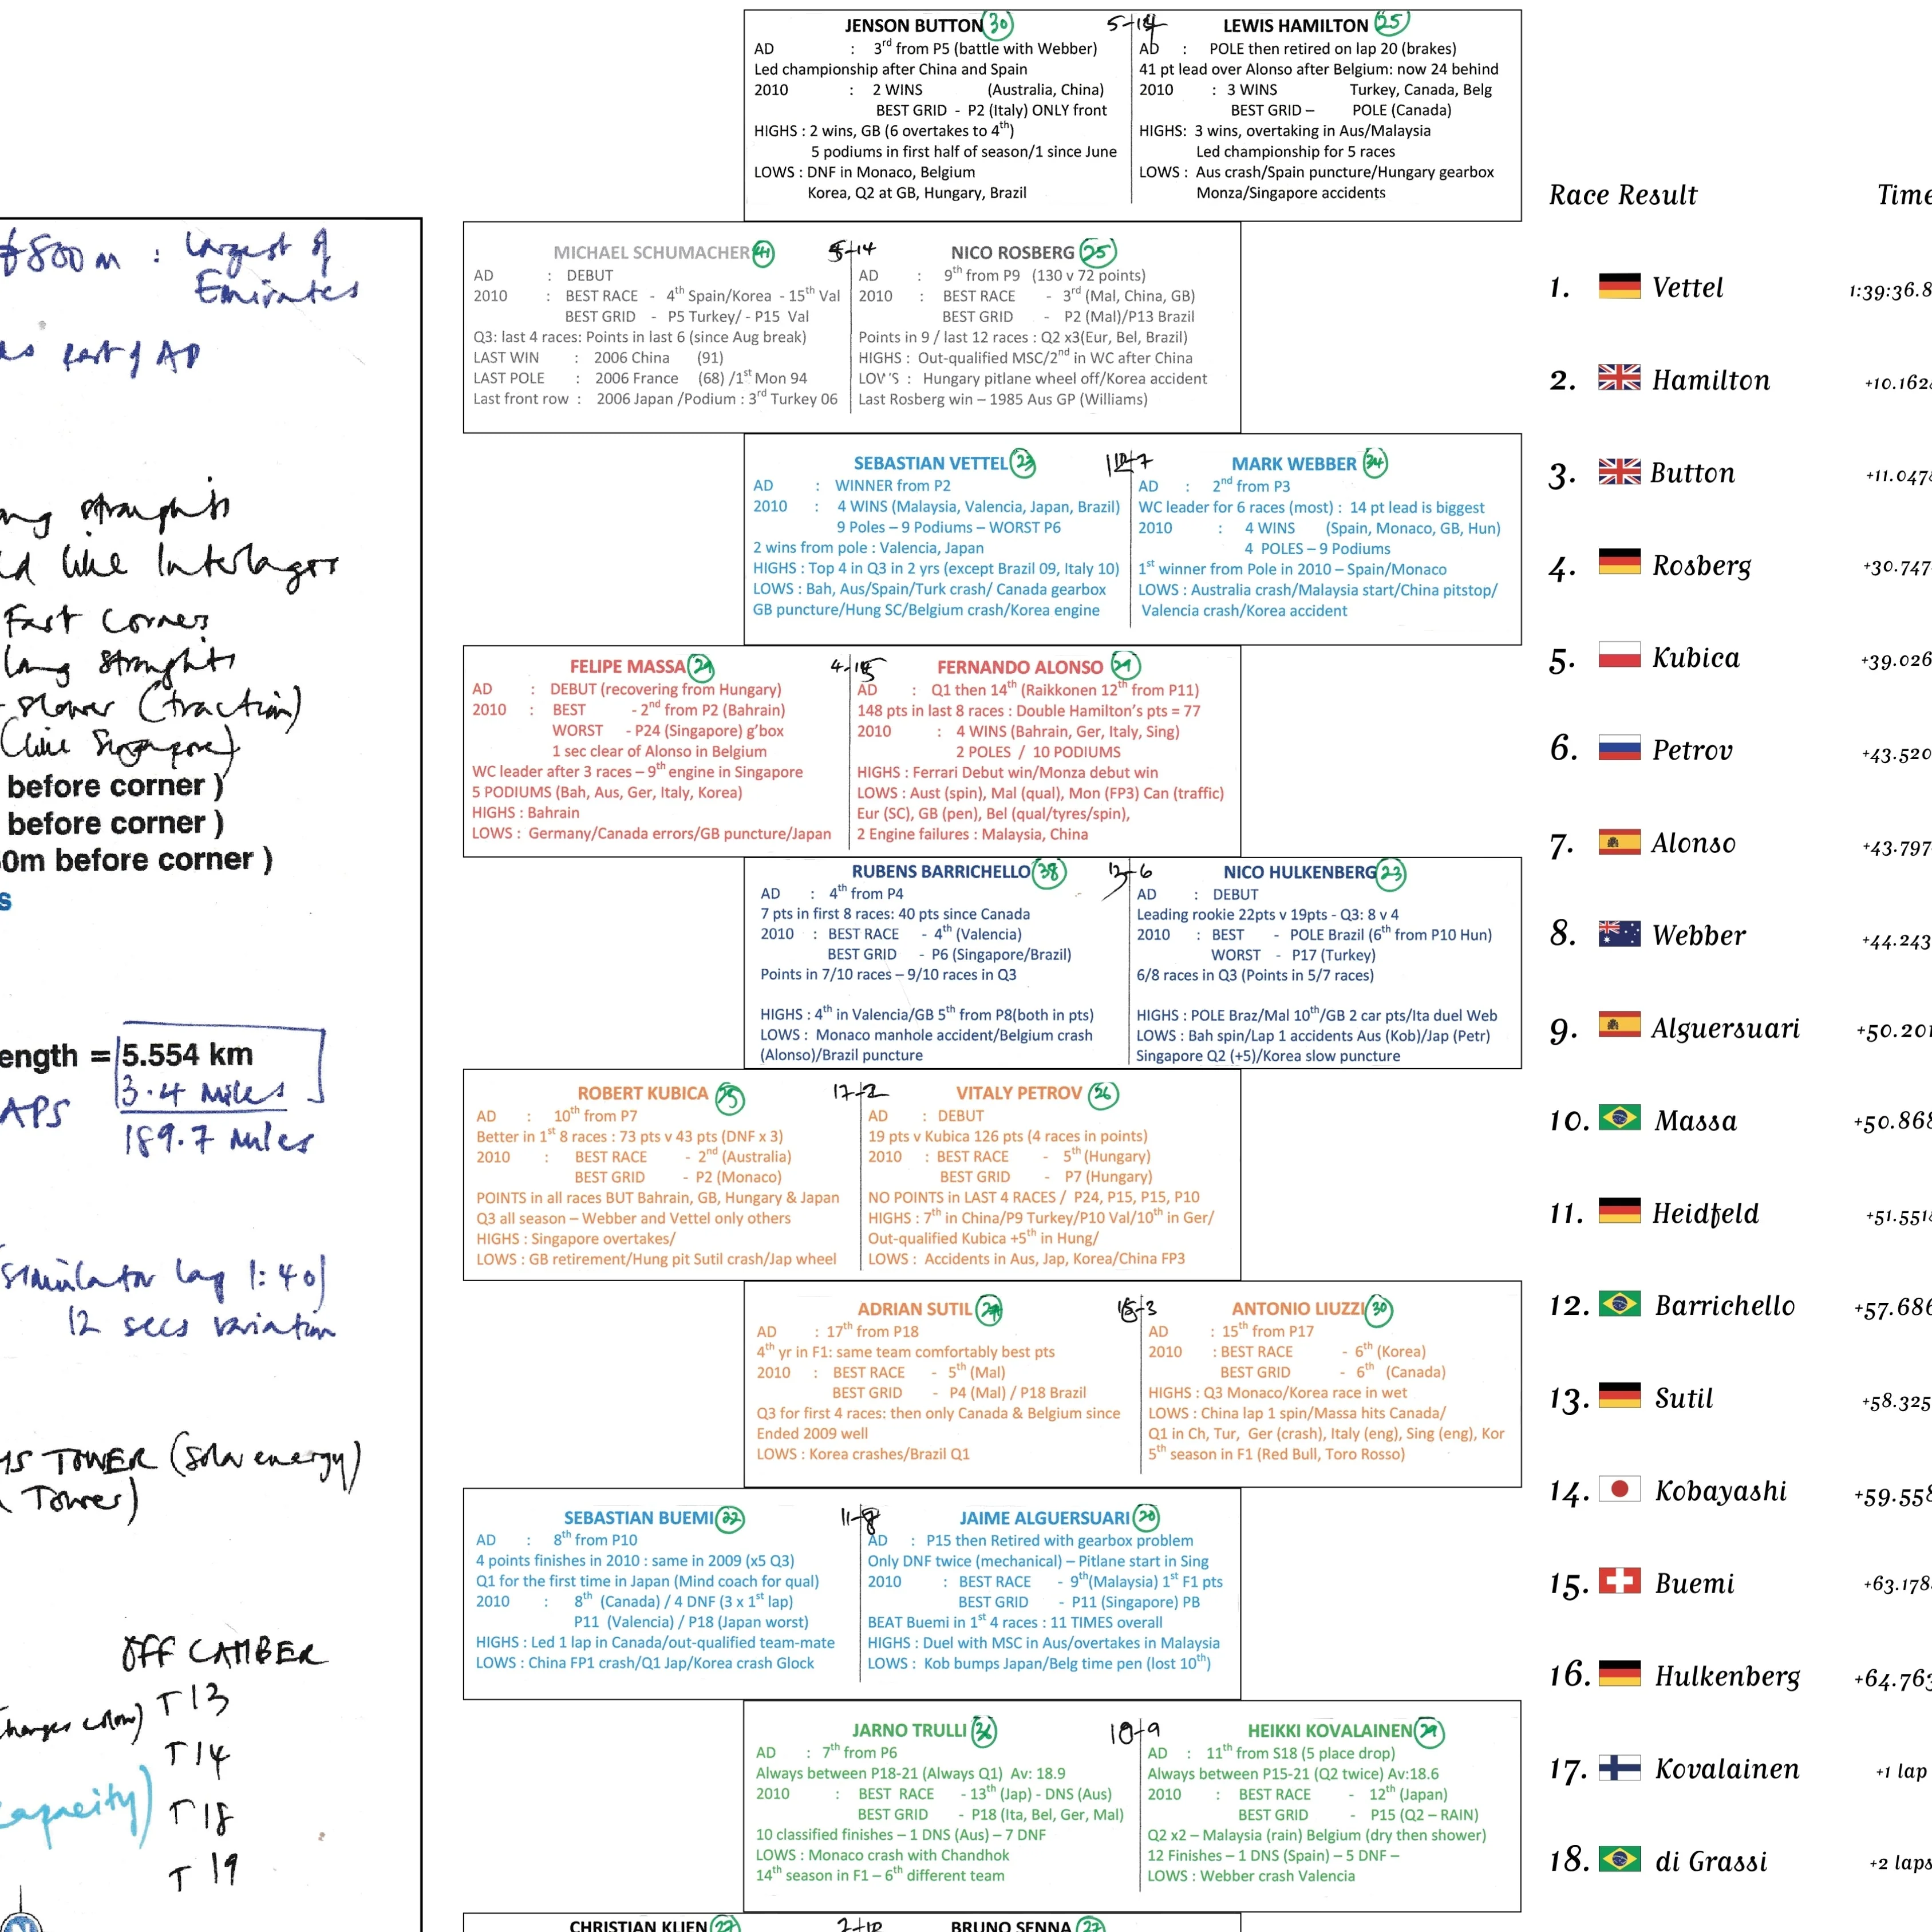 ≠800m : largest of
Emirates
as part of AD
straights
like Interlagos
Fast Corners
long straights
slower (traction)
(like Singapore)
before corner )
before corner )
0m before corner )
s
ength = 5.554 km
3.4 miles
APS
189.7 miles
simulator lap 1:40
12 secs variation
TOWER (solar energy)
Tower)
OFF CAMBER
T13
T14
capacity)
T18
T19
JENSON BUTTON 30
AD : 3rd from P5 (battle with Webber)
Led championship after China and Spain
2010 : 2 WINS (Australia, China)
BEST GRID - P2 (Italy) ONLY front
HIGHS : 2 wins, GB (6 overtakes to 4th)
5 podiums in first half of season/1 since June
LOWS : DNF in Monaco, Belgium
Korea, Q2 at GB, Hungary, Brazil
5-14
LEWIS HAMILTON 25
AD : POLE then retired on lap 20 (brakes)
41 pt lead over Alonso after Belgium: now 24 behind
2010 : 3 WINS Turkey, Canada, Belg
BEST GRID – POLE (Canada)
HIGHS: 3 wins, overtaking in Aus/Malaysia
Led championship for 5 races
LOWS : Aus crash/Spain puncture/Hungary gearbox
Monza/Singapore accidents
MICHAEL SCHUMACHER 41
AD : DEBUT
2010 : BEST RACE - 4th Spain/Korea - 15th Val
BEST GRID - P5 Turkey/ - P15 Val
Q3: last 4 races: Points in last 6 (since Aug break)
LAST WIN : 2006 China (91)
LAST POLE : 2006 France (68) /1st Mon 94
Last front row : 2006 Japan /Podium : 3rd Turkey 06
5-14
NICO ROSBERG 25
AD : 9th from P9 (130 v 72 points)
2010 : BEST RACE - 3rd (Mal, China, GB)
BEST GRID - P2 (Mal)/P13 Brazil
Points in 9 / last 12 races : Q2 x3(Eur, Bel, Brazil)
HIGHS : Out-qualified MSC/2nd in WC after China
LOW'S : Hungary pitlane wheel off/Korea accident
Last Rosberg win – 1985 Aus GP (Williams)
SEBASTIAN VETTEL 23
AD : WINNER from P2
2010 : 4 WINS (Malaysia, Valencia, Japan, Brazil)
9 Poles – 9 Podiums – WORST P6
2 wins from pole : Valencia, Japan
HIGHS : Top 4 in Q3 in 2 yrs (except Brazil 09, Italy 10)
LOWS : Bah, Aus/Spain/Turk crash/ Canada gearbox
GB puncture/Hung SC/Belgium crash/Korea engine
MARK WEBBER 34
AD : 2nd from P3
WC leader for 6 races (most) : 14 pt lead is biggest
2010 : 4 WINS (Spain, Monaco, GB, Hun)
4 POLES – 9 Podiums
1st winner from Pole in 2010 – Spain/Monaco
LOWS : Australia crash/Malaysia start/China pitstop/
Valencia crash/Korea accident
FELIPE MASSA 29
AD : DEBUT (recovering from Hungary)
2010 : BEST - 2nd from P2 (Bahrain)
WORST - P24 (Singapore) g'box
1 sec clear of Alonso in Belgium
WC leader after 3 races – 9th engine in Singapore
5 PODIUMS (Bah, Aus, Ger, Italy, Korea)
HIGHS : Bahrain
LOWS : Germany/Canada errors/GB puncture/Japan
4-15
FERNANDO ALONSO 29
AD : Q1 then 14th (Raikkonen 12th from P11)
148 pts in last 8 races : Double Hamilton's pts = 77
2010 : 4 WINS (Bahrain, Ger, Italy, Sing)
2 POLES / 10 PODIUMS
HIGHS : Ferrari Debut win/Monza debut win
LOWS : Aust (spin), Mal (qual), Mon (FP3) Can (traffic)
Eur (SC), GB (pen), Bel (qual/tyres/spin),
2 Engine failures : Malaysia, China
RUBENS BARRICHELLO 38
AD : 4th from P4
7 pts in first 8 races: 40 pts since Canada
2010 : BEST RACE - 4th (Valencia)
BEST GRID - P6 (Singapore/Brazil)
Points in 7/10 races – 9/10 races in Q3
HIGHS : 4th in Valencia/GB 5th from P8(both in pts)
LOWS : Monaco manhole accident/Belgium crash
(Alonso)/Brazil puncture
NICO HULKENBERG 23
AD : DEBUT
Leading rookie 22pts v 19pts - Q3: 8 v 4
2010 : BEST - POLE Brazil (6th from P10 Hun)
WORST - P17 (Turkey)
6/8 races in Q3 (Points in 5/7 races)
HIGHS : POLE Braz/Mal 10th/GB 2 car pts/Ita duel Web
LOWS : Bah spin/Lap 1 accidents Aus (Kob)/Jap (Petr)
Singapore Q2 (+5)/Korea slow puncture
ROBERT KUBICA 25
AD : 10th from P7
Better in 1st 8 races : 73 pts v 43 pts (DNF x 3)
2010 : BEST RACE - 2nd (Australia)
BEST GRID - P2 (Monaco)
POINTS in all races BUT Bahrain, GB, Hungary & Japan
Q3 all season – Webber and Vettel only others
HIGHS : Singapore overtakes/
LOWS : GB retirement/Hung pit Sutil crash/Jap wheel
17-2
VITALY PETROV 26
AD : DEBUT
19 pts v Kubica 126 pts (4 races in points)
2010 : BEST RACE - 5th (Hungary)
BEST GRID - P7 (Hungary)
NO POINTS in LAST 4 RACES / P24, P15, P15, P10
HIGHS : 7th in China/P9 Turkey/P10 Val/10th in Ger/
Out-qualified Kubica +5th in Hung/
LOWS : Accidents in Aus, Jap, Korea/China FP3
ADRIAN SUTIL 27
AD : 17th from P18
4th yr in F1: same team comfortably best pts
2010 : BEST RACE - 5th (Mal)
BEST GRID - P4 (Mal) / P18 Brazil
Q3 for first 4 races: then only Canada & Belgium since
Ended 2009 well
LOWS : Korea crashes/Brazil Q1
ANTONIO LIUZZI 30
AD : 15th from P17
2010 : BEST RACE - 6th (Korea)
BEST GRID - 6th (Canada)
HIGHS : Q3 Monaco/Korea race in wet
LOWS : China lap 1 spin/Massa hits Canada/
Q1 in Ch, Tur, Ger (crash), Italy (eng), Sing (eng), Kor
5th season in F1 (Red Bull, Toro Rosso)
SEBASTIAN BUEMI 22
AD : 8th from P10
4 points finishes in 2010 : same in 2009 (x5 Q3)
Q1 for the first time in Japan (Mind coach for qual)
2010 : 8th (Canada) / 4 DNF (3 x 1st lap)
P11 (Valencia) / P18 (Japan worst)
HIGHS : Led 1 lap in Canada/out-qualified team-mate
LOWS : China FP1 crash/Q1 Jap/Korea crash Glock
11-8
JAIME ALGUERSUARI 20
AD : P15 then Retired with gearbox problem
Only DNF twice (mechanical) – Pitlane start in Sing
2010 : BEST RACE - 9th(Malaysia) 1st F1 pts
BEST GRID - P11 (Singapore) PB
BEAT Buemi in 1st 4 races : 11 TIMES overall
HIGHS : Duel with MSC in Aus/overtakes in Malaysia
LOWS : Kob bumps Japan/Belg time pen (lost 10th)
JARNO TRULLI 36
AD : 7th from P6
Always between P18-21 (Always Q1) Av: 18.9
2010 : BEST RACE - 13th (Jap) - DNS (Aus)
BEST GRID - P18 (Ita, Bel, Ger, Mal)
10 classified finishes – 1 DNS (Aus) – 7 DNF
LOWS : Monaco crash with Chandhok
14th season in F1 – 6th different team
10-9
HEIKKI KOVALAINEN 29
AD : 11th from S18 (5 place drop)
Always between P15-21 (Q2 twice) Av:18.6
2010 : BEST RACE - 12th (Japan)
BEST GRID - P15 (Q2 – RAIN)
Q2 x2 – Malaysia (rain) Belgium (dry then shower)
12 Finishes – 1 DNS (Spain) – 5 DNF –
LOWS : Webber crash Valencia
CHRISTIAN KLIEN 27
BRUNO SENNA 27
Race Result Time
1. Vettel 1:39:36.8
2. Hamilton +10.162
3. Button +11.047
4. Rosberg +30.747
5. Kubica +39.026
6. Petrov +43.520
7. Alonso +43.797
8. Webber +44.243
9. Alguersuari +50.201
10. Massa +50.868
11. Heidfeld +51.551
12. Barrichello +57.686
13. Sutil +58.325
14. Kobayashi +59.558
15. Buemi +63.178
16. Hulkenberg +64.763
17. Kovalainen +1 lap
18. di Grassi +2 laps